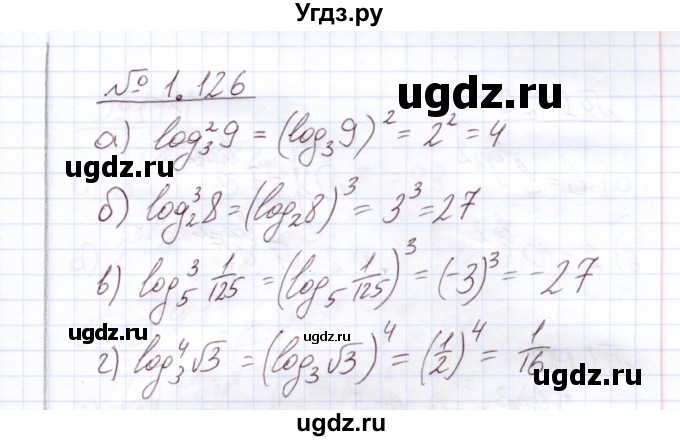 Угдз.ру
№ 1.126
ugdz.ru
а) log₃²9 = (log₃9)² = 2² = 4
ugdz.ru
б) log₂³8 = (log₂8)³ = 3³ = 27
ugdz.ru
в) log₅³ 1/125 = (log₅ 1/125)³ = (-3)³ = -27
ugdz.ru
ugdz.ru
ugdz.ru
г) log₃⁴√3 = (log₃√3)⁴ = (1/2)⁴ = 1/16
ugdz.ru
ugdz.ru